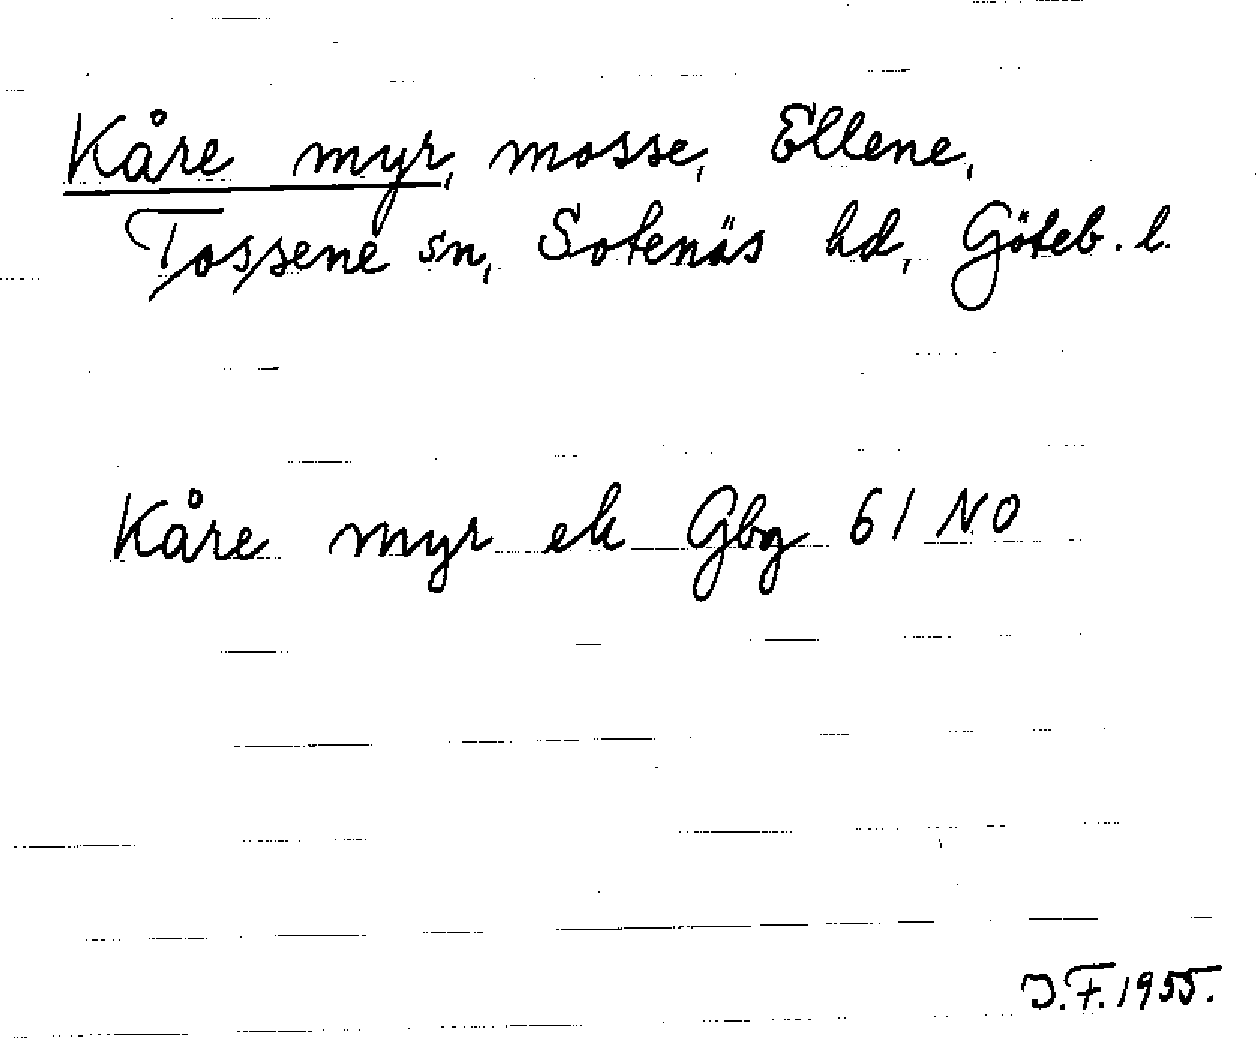 Kåre myr, mosse, Ellene,
Tossene sn, Sotenäs hd, Göteb. l.
Kåre myr ek Gbg 61 NO
J.F. 1955.